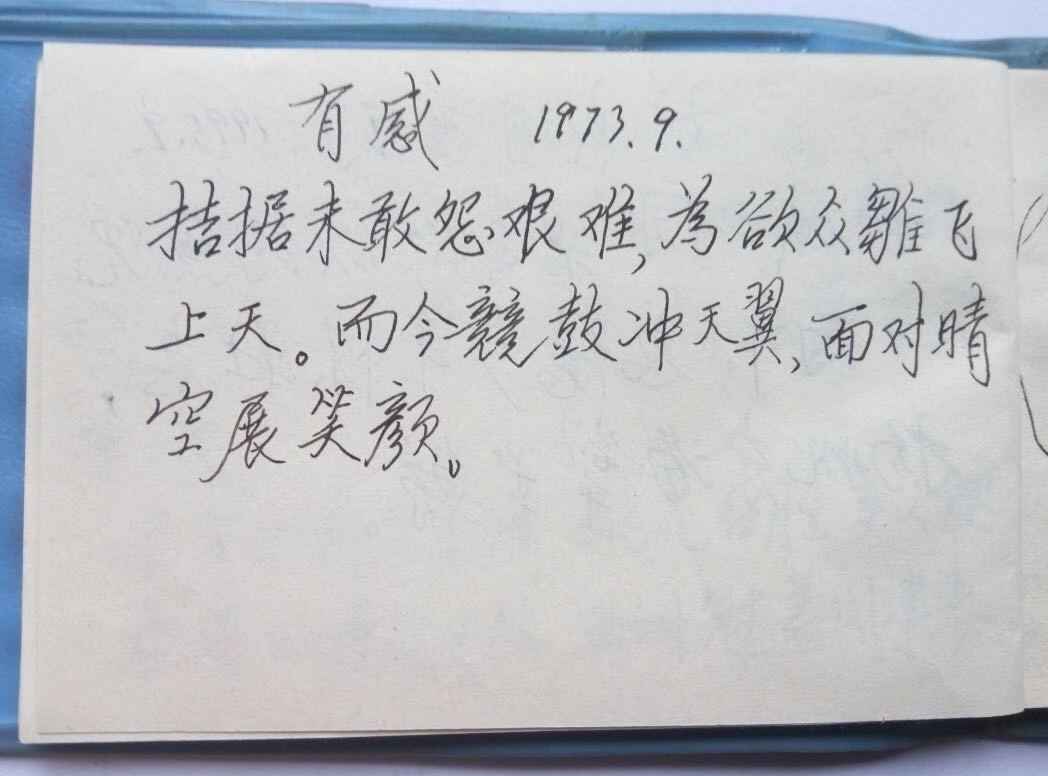 有感 1973.9.
拮据未敢怨艰难,為欲众雛飞
上天。而今競鼓冲天翼,面对晴
空展笑颜。